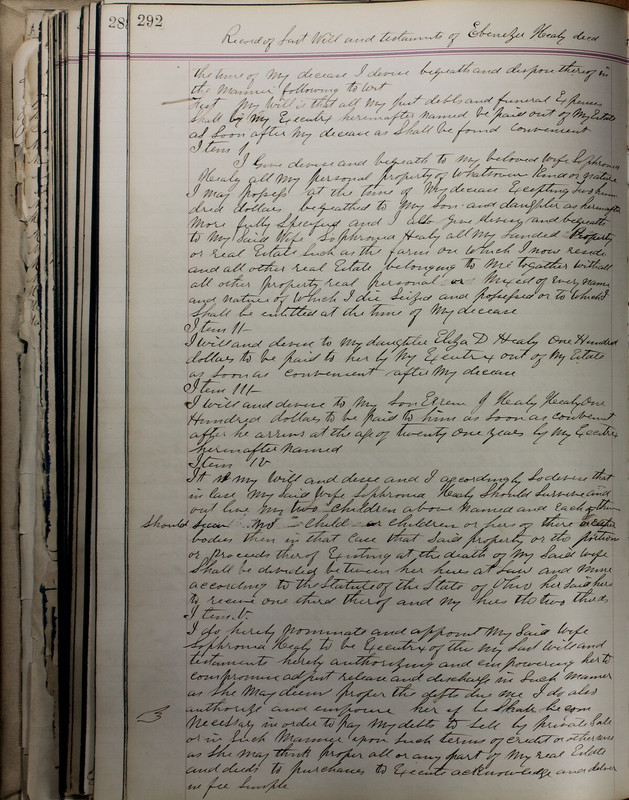 28
292
Record of Last Will and testaments of Ebenezer Healy decd
the time of My decease I devise bequeath and dispose thereof in
the Manner following to wit
First My Will is that all My just debts and funeral Expenses
shall by My Executrix hereinafter Named be paid out of My Estate
as Soon after My decease as Shall be found convenient
Item 1
I Give devise and bequeath to my beloved Wife Sophronia
Healy all My personal property of Whatsoever Kind or nature
I may possess at the time of My decease Excepting two hun
dred dollars bequeathed to My Son and daughter as hereinafter
More fully Specified and I also give devise and bequeath
to My Said Wife Sophronia Healy all My landed Property
or real Estate Such as the farm on Which I now reside
and all other real Estate belonging to Me together with all
all other property real personal or Mixed of Every name
and nature of Which I die Seized and possessed or to Which I
Shall be entitled at the time of My decease
Item II
I will and devise to My daughter Eliza D Healy One Hundred
dollars to be paid to her by My Executrix out of My Estate
as soon as convenient after My decease
Item III
I will and devise to My Son J Healy Healy One
Hundred dollars to be paid to him as soon as convenient
after he arrives at the age of twenty One years by My Executrix
hereinafter Named
Item IV
It is my Will and desire and I accordingly So devise that
in Case My Said Wife Sophronia Healy Should Survive and
out live My two Children above Named and Each of them
Should No Child or Children or heirs of there
bodies then in that Case that Said property or the portion
or proceeds therof Existing at the death of My Said Wife
Shall be divided between her heirs at law and Mine
according to the Statute of the State of Ohio her Said heirs
to receive one third therof and My heirs the two thirds
Item V.
I do hereby Nominate and appoint My Said Wife
Sophronia Healy to be Executrix of this My Last Will and
testament hereby authorizing and empowering her to
compromise adjust release and discharge in Such Manner
as She May deem proper the debts due me I do also
authorize and empower her if it Shall become
Necessary in order to pay My debts to Sell by private Sale
or in Such Manner upon Such terms of credit or otherwise
as She May think proper all or any part of My real Estate
and deeds to purchasers to Execute acknowledge and deliver
in fee Simple